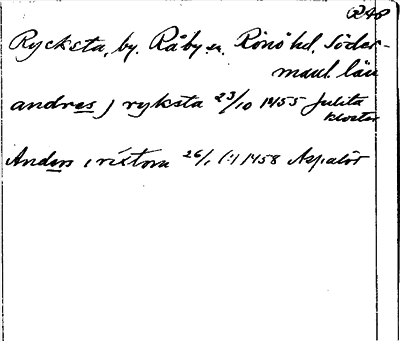 248
Rycksta, by. Råby sn. Rönö hd. Söder-
manl. län
andres j ryksta 23/10 1455 Julita
kloster
Anders i rixtom 26/1 1458 Aspalör